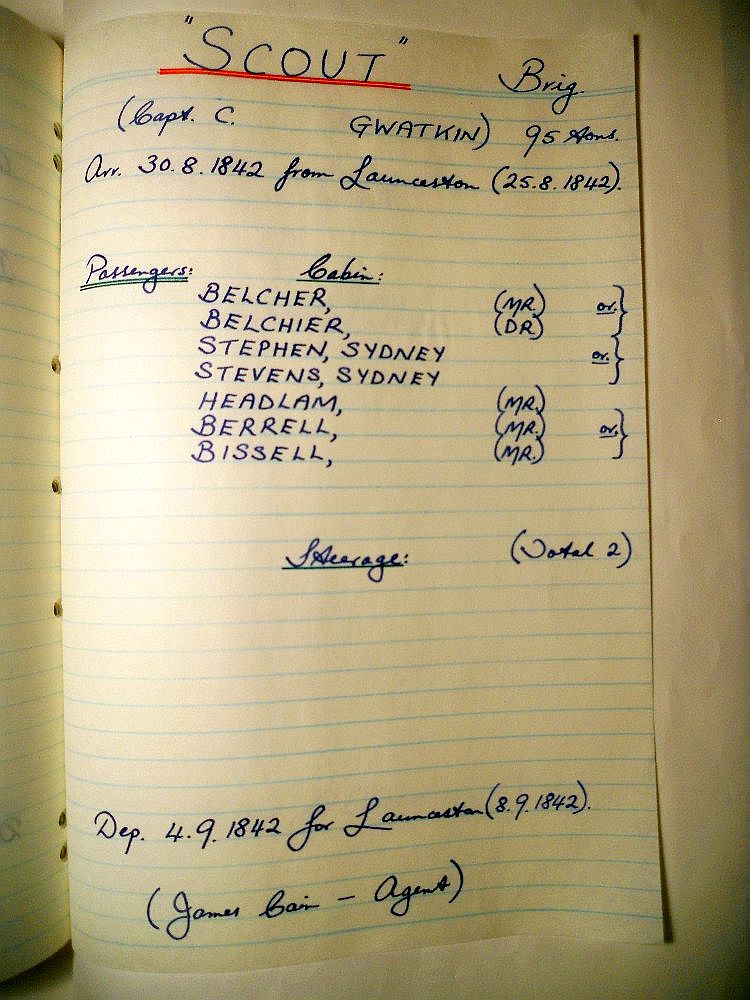 "SCOUT" Brig.
(Capt. C. GWATKIN) 95 tons.
Arr. 30.8.1842 from Launceston (25.8.1842).
Passengers: Cabin:
BELCHER, (MR.) or.}
BELCHIER, (DR)
STEPHEN, SYDNEY or.}
STEVENS, SYDNEY
HEADLAM, (MR.)
BERRELL, (MR.) or.}
BISSELL, (MR.)
Steerage: (Total 2)
Dep. 4.9.1842 for Launceston (8.9.1842).
(James Cain - Agent)